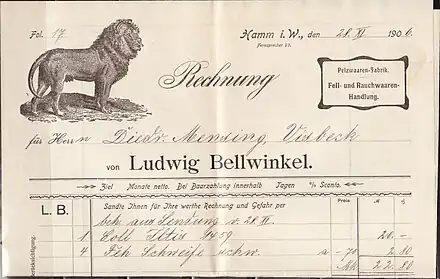 Fol. 17
Hamm i. W., den 28. XI. 1906.
Fernsprecher
Rechnung
Pelzwaaren-Fabrik.
Fell- und Rauchwaaren-
Handlung.
für Herrn Diedr. Mensing, Visbeck
von Ludwig Bellwinkel.
Ziel Monate netto. Bei Baarzahlung innerhalb Tagen % Sconto.
L. B.
Sandte Ihnen für Ihre werthe Rechnung und Gefahr per
Preis
M
Sendung v. 28. XI.
1 9459 20.–
4 Feh Schweife schw. a –70 2.80
Mk 22.80